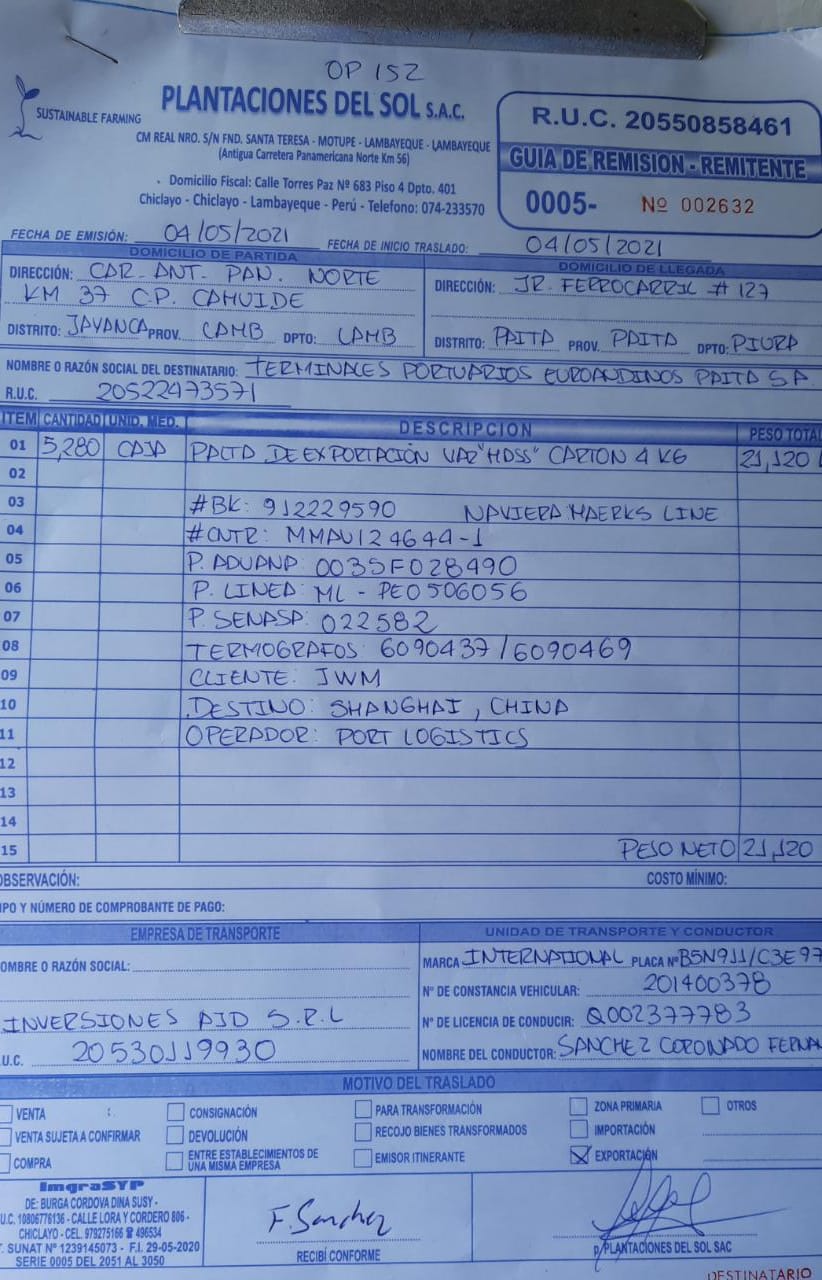 OP 152
SUSTAINABLE FARMING
PLANTACIONES DEL SOL S.A.C.
CM REAL NRO. S/N FND. SANTA TERESA - MOTUPE - LAMBAYEQUE - LAMBAYEQUE
(Antigua Carretera Panamericana Norte Km 56)
Domicilio Fiscal: Calle Torres Paz Nº 683 Piso 4 Dpto. 401
Chiclayo - Chiclayo - Lambayeque - Perú - Telefono: 074-233570
R.U.C. 20550858461
GUIA DE REMISION - REMITENTE
0005- Nº 002632
FECHA DE EMISIÓN: 04/05/2021 FECHA DE INICIO TRASLADO: 04/05/2021
DOMICILIO DE PARTIDA
DIRECCIÓN: CAR. ANT. PAN. NORTE
KM 37 C.P. CAHUIDE
DISTRITO: JAYANCA PROV. LAMB DPTO: LAMB
DOMICILIO DE LLEGADA
DIRECCIÓN: JR. FERROCARRIL # 127
DISTRITO: PAITA PROV. PAITA DPTO: PIURA
NOMBRE O RAZÓN SOCIAL DEL DESTINATARIO: TERMINALES PORTUARIOS EUROANDINOS PAITA S.A.
R.U.C. 20522473571
ITEM CANTIDAD UNID. MED. DESCRIPCION PESO TOTAL
01 5,280 CAJA PALTA DE EXPORTACIÓN VAR "HASS" CARTON 4 KG 21,120
02
03 #BK: 912229590 NAVIERA: MAERKS LINE
04 #CNTR: MMAU124644-1
05 P. ADUANA: 003SF028490
06 P. LINEA: ML - PE0506056
07 P. SENASA: 022582
08 TERMOGRAFOS: 6090437/6090469
09 CLIENTE: JWM
10 DESTINO: SHANGHAI, CHINA
11 OPERADOR: PORT LOGISTICS
12
13
14
15 PESO NETO 21,120
OBSERVACIÓN: COSTO MÍNIMO:
IPO Y NÚMERO DE COMPROBANTE DE PAGO:
EMPRESA DE TRANSPORTE
OMBRE O RAZÓN SOCIAL:
INVERSIONES AJD S.R.L
.U.C. 20530119930
UNIDAD DE TRANSPORTE Y CONDUCTOR
MARCA INTERNATIONAL PLACA Nº B5N911/C3E97
Nº DE CONSTANCIA VEHICULAR: 201400378
Nº DE LICENCIA DE CONDUCIR: Q002377783
NOMBRE DEL CONDUCTOR: SANCHEZ CORONADO FERNA
MOTIVO DEL TRASLADO
VENTA CONSIGNACIÓN PARA TRANSFORMACIÓN ZONA PRIMARIA OTROS
VENTA SUJETA A CONFIRMAR DEVOLUCIÓN RECOJO BIENES TRANSFORMADOS IMPORTACIÓN
COMPRA ENTRE ESTABLECIMIENTOS DE UNA MISMA EMPRESA EMISOR ITINERANTE EXPORTACIÓN
ImgraSYP
DE: BURGA CORDOVA DINA SUSY -
U.C. 10806776136 - CALLE LORA Y CORDERO 806 -
CHICLAYO - CEL. 979275166 ☎ 496534
. SUNAT Nº 1239145073 - F.I. 29-05-2020
SERIE 0005 DEL 2051 AL 3050
F. Sanchez
RECIBÍ CONFORME
p/PLANTACIONES DEL SOL SAC
DESTINATARIO